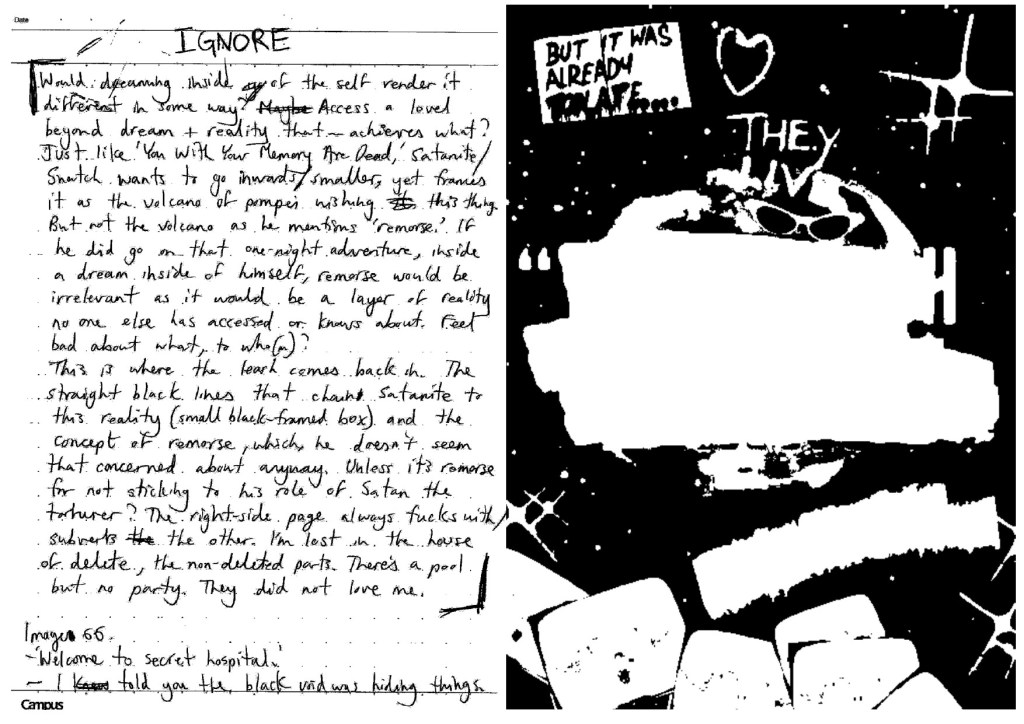 Date
IGNORE
Would dreaming inside of the self render it
different in some way? Maybe Access a level
beyond dream + reality that – achieves what?
Just like 'You With Your Memory Are Dead,' Satanite/
Snatch wants to go inwards/smaller, yet frames
it as the volcano of pompei wishing this thing.
But not the volcano as he mentions 'remorse.' If
he did go on that one-night adventure, inside
a dream inside of himself, remorse would be
irrelevant as it would be a layer of reality
no one else has accessed or knows about. Feel
bad about what, to who(m)?
This is where the leash comes back in. The
straight black lines that chains Satanite to
this reality (small black-framed box) and the
concept of remorse, which he doesn't seem
that concerned about anyway. Unless it's remorse
for not sticking to his role of Satan the
torturer? The right-side page always fucks with/
subverts the the other. I'm lost in the house
of delete, the non-deleted parts. There's a pool
but no party. They did not love me.
Image 66.
- 'Welcome to secret hospital.'
- I told you the black void was hiding things.
Campus
BUT IT WAS
ALREADY
TOO LATE....
THEY
LIV